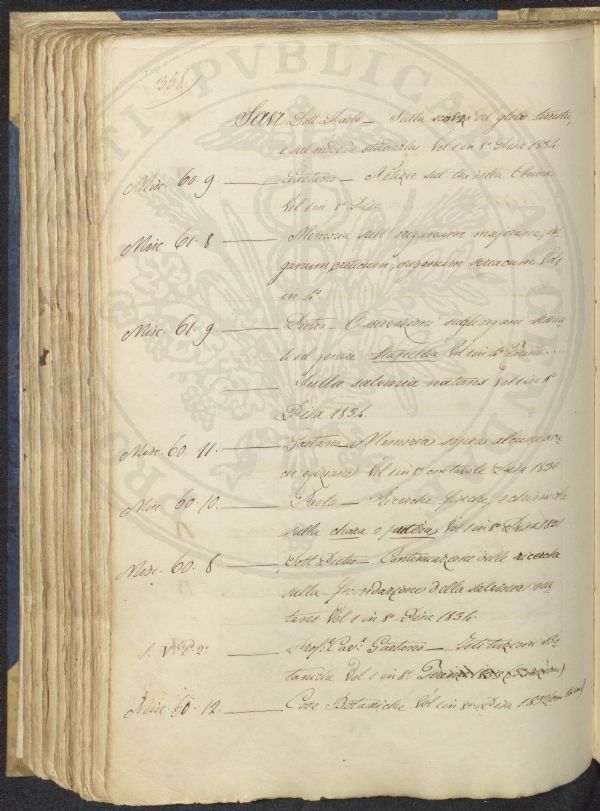 358
Savi Dott. Paolo — Sulla scorza del globo terrestre,
e sul modo di studiarla Vol 1 in 8° Pisa 1834
Misc. 60. 9 — Gaetano — Notizie sul thè della China
Vol 1 in 8° Pisa
Misc. 61. 8 — Memoria sull' origanum majorana, ori
ganum creticum, origanum siriacum Vol 1
in 4°
Misc. 61. 9 — Pietro — Osservazioni sugli organi sessua
li del genere Stapelia Vol 1 in 4°
— Sulla salvinia natans Vol 1 in 8°
Pisa 1834.
Misc. 60. 11. — Gaetano — Memoria sopra alcune aca
cie egiziane Vol 1 in 8° con tavole Pisa 1830
Misc. 60. 10. — Paolo — Ricerche fisiche, e chimiche
sulla chara e Vol 1 in 8° Pisa 1831
Misc. 60. 8 — Dott. Pietro — Continuazione delle ricerche
sulla fecondazione della salvinia na
tans Vol 1 in 8° Pisa 1834.
1. V. P. 2: — Prof. Cav. Gaetano — Istituzioni Bo
taniche Vol 1 in 8°
Misc. 60. 12. — Cose Botaniche Vol 1 in 8° Pisa 1832